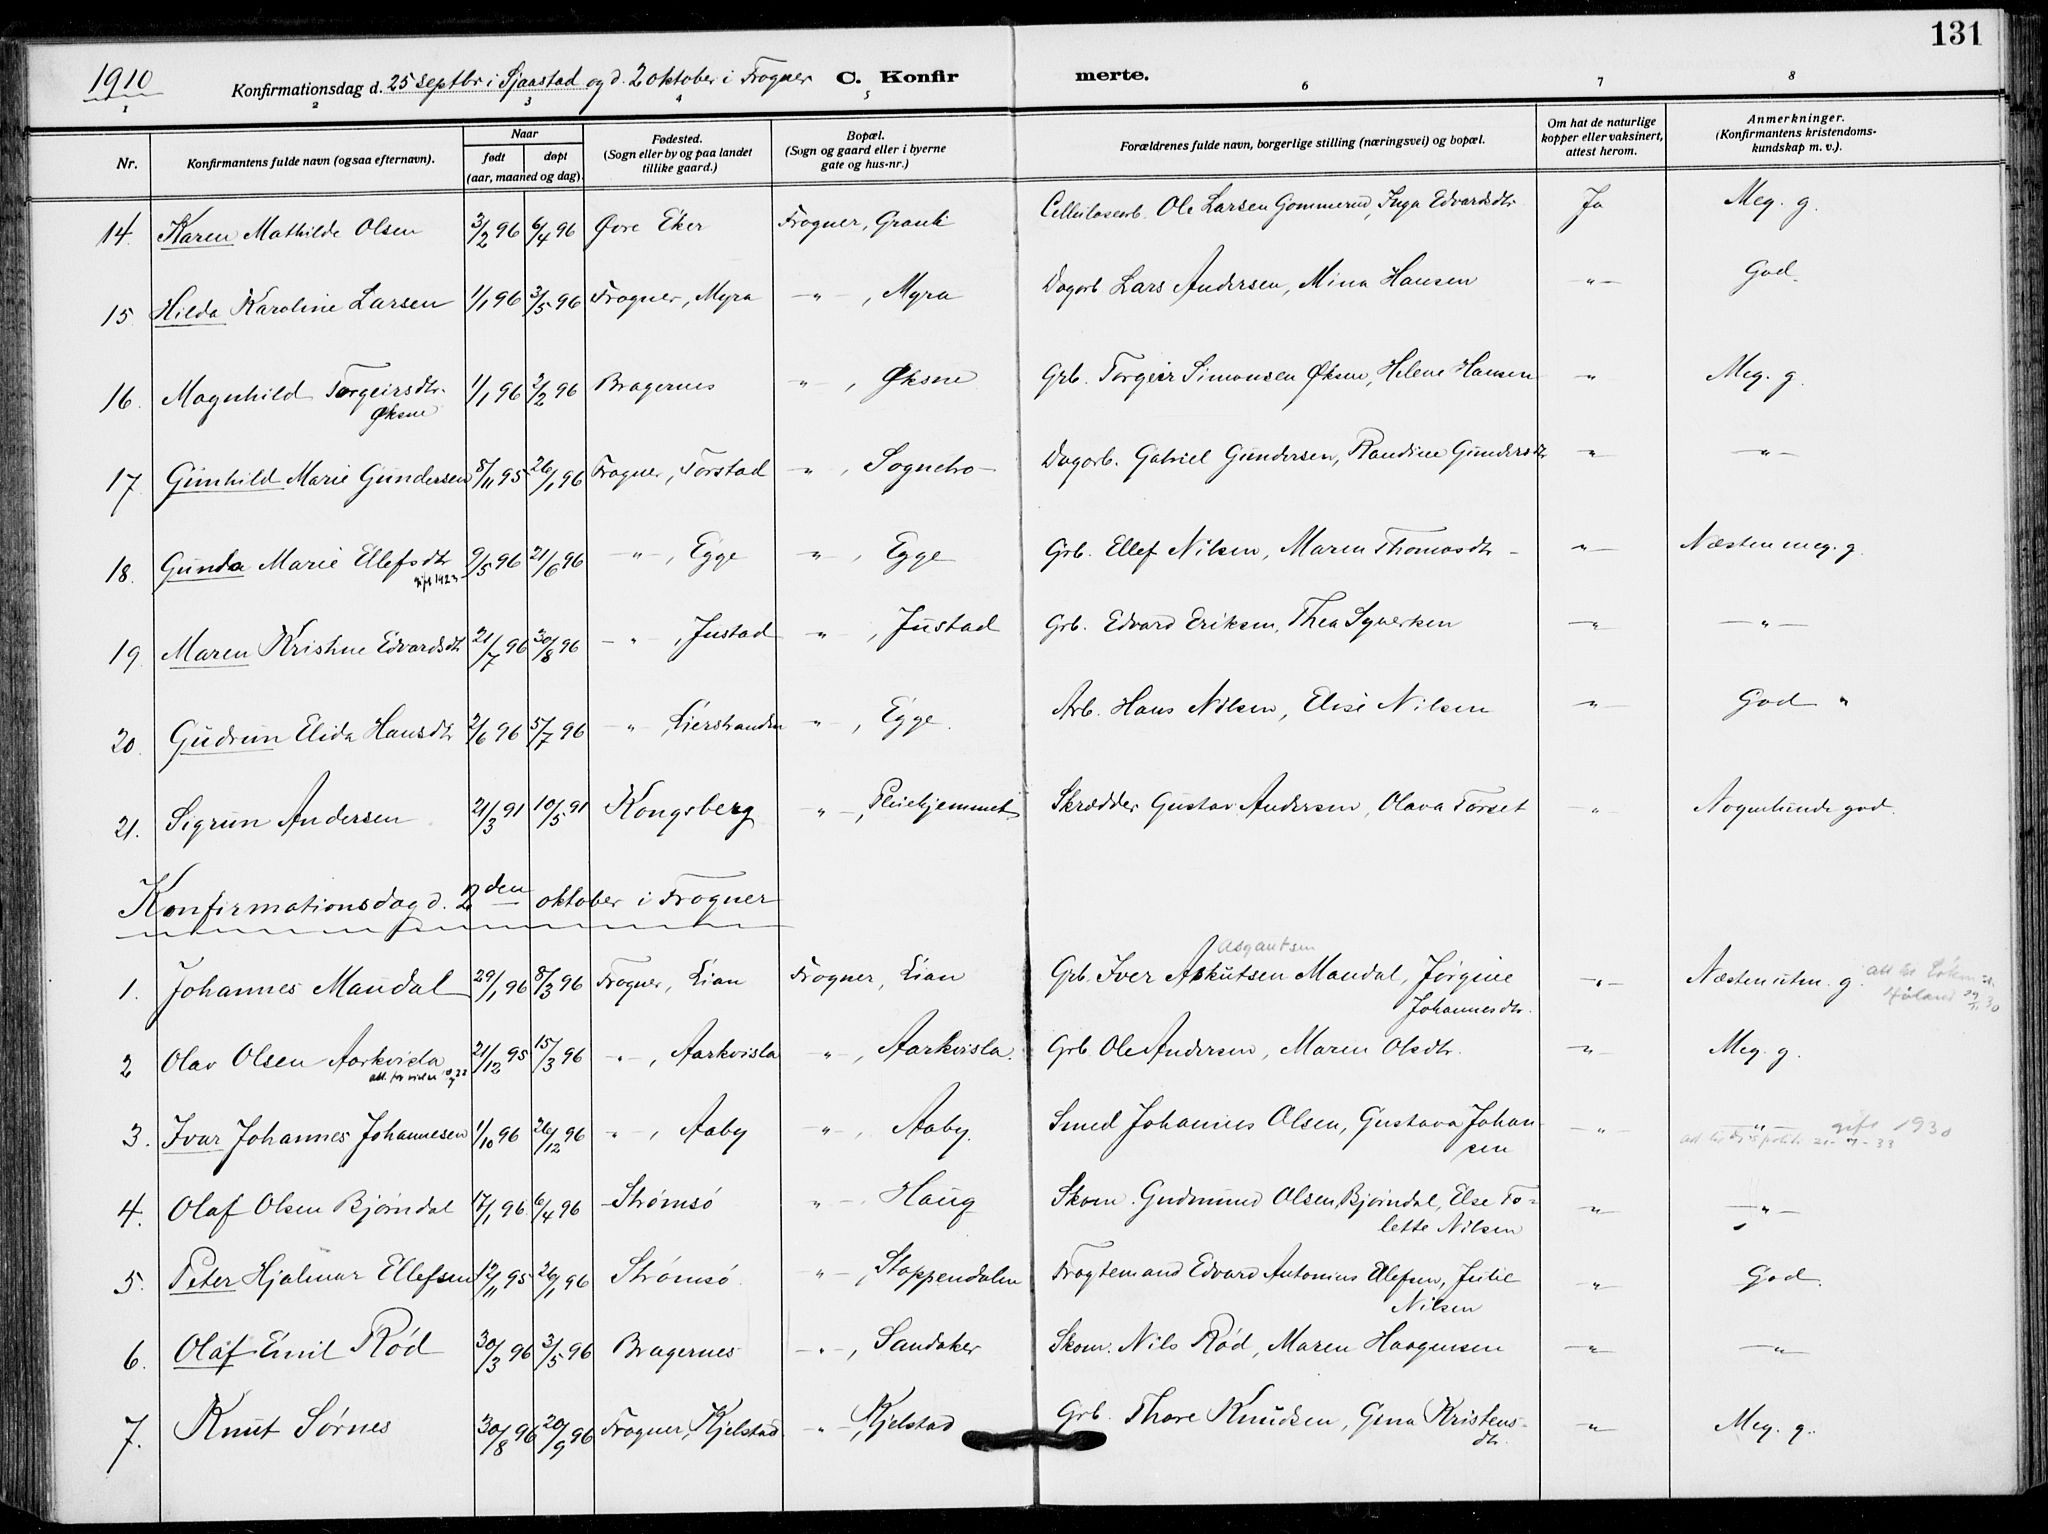 131
1910 Konfirmationsdag d. 25 septbr i Sjaastad og d. 2 oktober i Frogner C. Konfir merte.
1 2 3 4 5 6 7 8
Nr. Konfirmantens fulde navn (ogsaa efternavn). Naar født døpt (aar, maaned og dag). Fødested. (Sogn eller by og paa landet tillike gaard.) Bopæl. (Sogn og gaard eller i byerne gate og hus-nr.) Forældrenes fulde navn, borgerlige stilling (næringsvei) og bopæl. Om hat de naturlige kopper eller vaksinert, attest herom. Anmerkninger. (Konfirmantens kristendoms-kundskap m. v.).
14. Karen Mathilde Olsen 3/2 96 6/4 96 Øvre Eker Frogner, Cellulosearb. Ole Larsen Gommerud, Inga Edvardsdtr Ja Meg. g.
15. Hilda Karoline Larsen 1/1 96 3/5 96 Frogner, Myra -"-, Myra Dagarb. Lars Andersen, Mina Hansen -"- God.
16. Magnhild Torgeirsdtr. 1/1 96 2/2 96 Bragernes "-, Øksne Grb. Torgeir Simonsen Øksne, Helene Hansen -"- Meg. g.
Øksne
17. Gunhild Marie Gundersen 8/11 95 26/1 96 Frogner, Torstad -"-, Sognebo- Dagarb. Gabriel Gundersen, Randine Gundersdtr -"- -"-
18. Gunda Marie Ellefsdtr 9/5 96 21/6 96 -"-, Egge "-, Egge Grb. Ellef Nilsen, Maren Thomasdtr - -"- Næsten meg. g.
gift 1923
19. Maren Kristine Edvardsdtr 21/7 96 30/8 96 -"-, Justad "-, Justad Grb. Edvard Eriksen, Thea Syversen -"- -"-
20. Gudrun Elida Hansdtr 2/6 96 5/7 96 -"-, Lierstranden "-, Egge. Arb. Hans Nilsen, Elise Nilsen -"- God "
21. Sigrun Andersen 21/3 91 10/5 91 Kongsberg "-, Pleiehjemmet Skrædder Gustav Andersen, Olava Torset -"- Nogenlunde god.
Konfirmationsdag d. 2den oktober i Frogner
Asgautsen
1. Johannes Maudal 29/1 96 8/3 96 Frogner, Lian Frogner, Lian Grb. Iver Askutsen Maudal, Jørgine -"- Næsten uten. g.
Johannesdtr.
2 Olav Olsen Aarkvisla 21/12 95 15/3 96 -"-, Aarkvisla "-, Aarkvisla. Grb. Ole Andersen, Maren Olsdtr. -"- Meg. g.
3. Ivar Johannes Johannesen 1/10 96 26/12 96 -"-, Aaby -"-, Aaby. Smed Johannes Olsen, Gustava Johan- -"- -"- gift 1930
sen
4. Olaf Olsen Bjørndal 17/1 96 6/4 96 Strømsø "-, Haug Skom. Gudmund Olsen Bjørndal, Else To- -"- -"-
lette Nilsen
5. Peter Hjalmar Ellefsen 12/11 95 26/1 96 Strømsø -"-, Stoppendalen Fragtemand Edvard Antonius Ellefsen, Julie -"- God.
Nilsen
6. Olaf Emil Rød 30/3 96 3/5 96 Bragernes -"-, Sandaker Skom. Nils Rød, Maren Haagensen -"- -"-
7. Knut Sørnes 30/8 96 20/9 96 Frogner, Kjelstad -"-, Kjelstad Grb. Thore Knudsen, Gina Kristens- -"- Meg. g.
dtr.